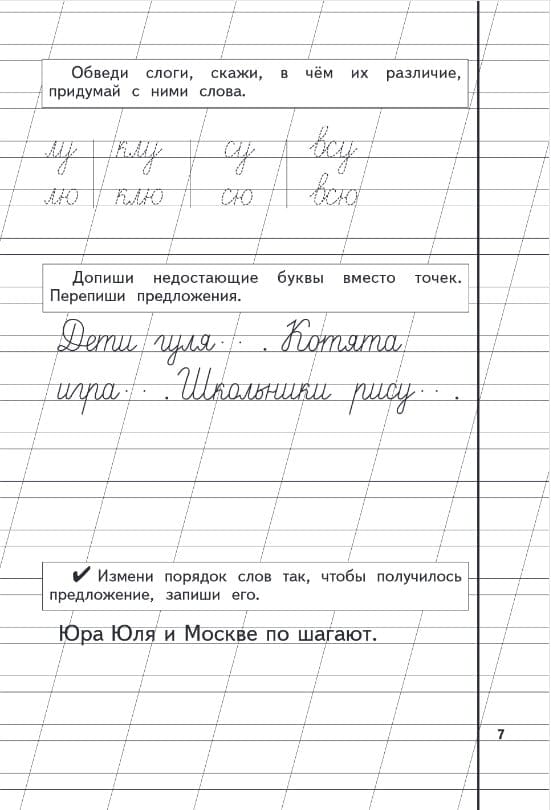 Обведи слоги, скажи, в чём их различие,
придумай с ними слова.
лу клу су всу
лю клю сю всю
Допиши недостающие буквы вместо точек.
Перепиши предложения.
Дети гуля·· . Котята
игра·· . Школьники рису·· .
✔ Измени порядок слов так, чтобы получилось
предложение, запиши его.
Юра Юля и Москве по шагают.
7